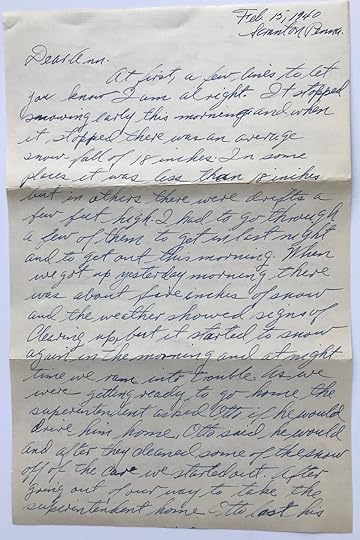 Feb. 15, 1940
Scranton Penna.
Dear Ann.
At first, a few lines to let
you know I am al right. It stopped
snowing early this morning and when
it stopped there was an average
snow-fall of 18 inches. In some
places it was less than 18 inches
but in others there were drifts a
few feet high. I had to go through
a few of them to get in last night
and to get out this morning. When
we got up yesterday morning there
was about five inches of snow
and the weather showed signs of
clearing up, but it started to snow
again in the morning and at night
time we ran into trouble. As we
were getting ready to go home the
superintendent asked Otto if he would
drive him home. Otto said, he would
and after they cleaned some of the snow
off of the care we started out. After
going out of our way to take the
superintendent home Otto lost his